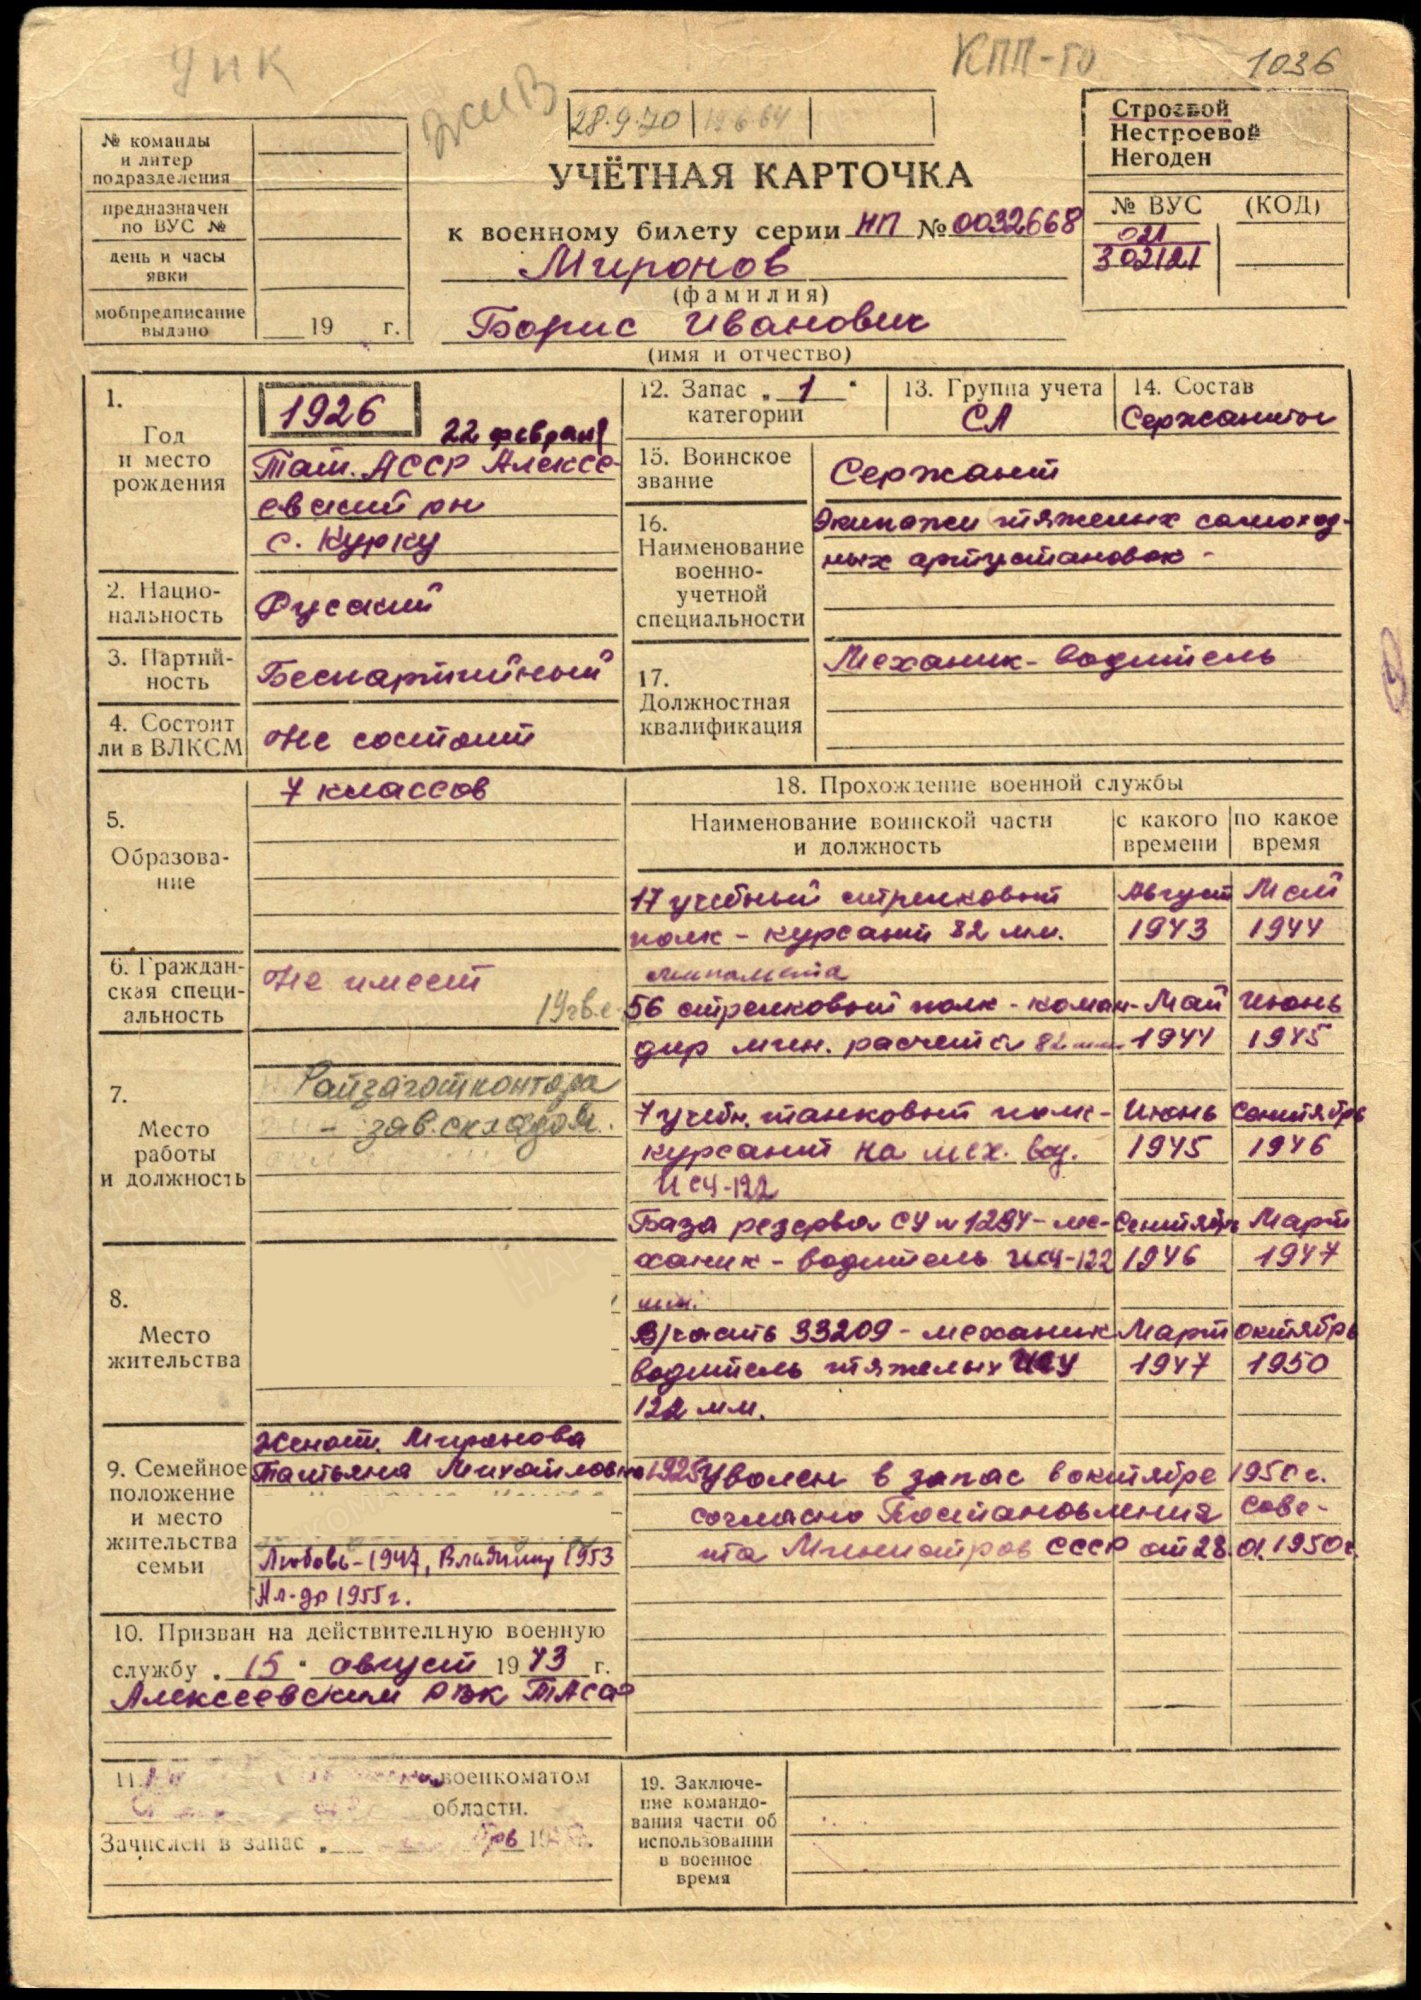 УПК
ЖИВ
КПП-го
1036
28.9.70
19.6.64
Строевой
Нестроевой
Негоден
№ команды
и литер
подразделения
предназначен
по ВУС №
день и часы
явки
мобпредписание
выдано
19 г.
УЧЁТНАЯ КАРТОЧКА
к военному билету серии НП № 0032668
Миронов
(фамилия)
Борис Иванович
(имя и отчество)
№ ВУС (КОД)
021
302121
1.
Год
и место
рождения
1926
22 февраля
Тат. АССР Алексе-
евский рн
с. Курку
2. Нацио-
нальность
Русский
3. Партий-
ность
Беспартийный
4. Состоит
ли в ВЛКСМ
Не состоит
12. Запас „ 1 "
категории
13. Группа учета
СА
14. Состав
Сержанты
15. Воинское
звание
Сержант
16.
Наименование
военно-
учетной
специальности
Экипажи тяжелых самоход-
ных артустановок -
17.
Должностная
квалификация
Механик-водитель
5.
Образова-
ние
7 классов
6. Граждан-
ская специ-
альность
Не имеет
7.
Место
работы
и должность
Райзаготконтора
- зав.складом.
8.
Место
жительства
9. Семейное
положение
и место
жительства
семьи
Женат. Миронова
Татьяна Михайловна 1925
Любовь-1947, Владимир 1953
Ал-др 1955г.
10. Призван на действительную военную
службу „ 15 " август 1943 г.
Алексеевский РВК ТАССР
11. военкоматом
области.
Зачислен в запас „
18. Прохождение военной службы
Наименование воинской части
и должность
с какого
времени
по какое
время
17 учебный стрелковый Август Май
полк - курсант 82 мм. 1943 1944
миномета
56 стрелковый полк - коман- Май Июнь
дир мин. расчета 82 мм 1944 1945
7 учебн. танковый полк- Июнь Сентябрь
курсант на мех. вод. 1945 1946
ИСУ-122
База резерва СУ № 1294 - ме- Сентябрь Март
ханик - водитель ИСУ-122 1946 1947
мм.
В/часть 33209 - механик Март Октябрь
водитель тяжелых ИСУ 1947 1950
122 мм.
Уволен в запас в октябре 1950 г.
согласно Постановления Сове-
та Министров СССР от 28.01.1950г.
19. Заключе-
ние командо-
вания части об
использовании
в военное
время